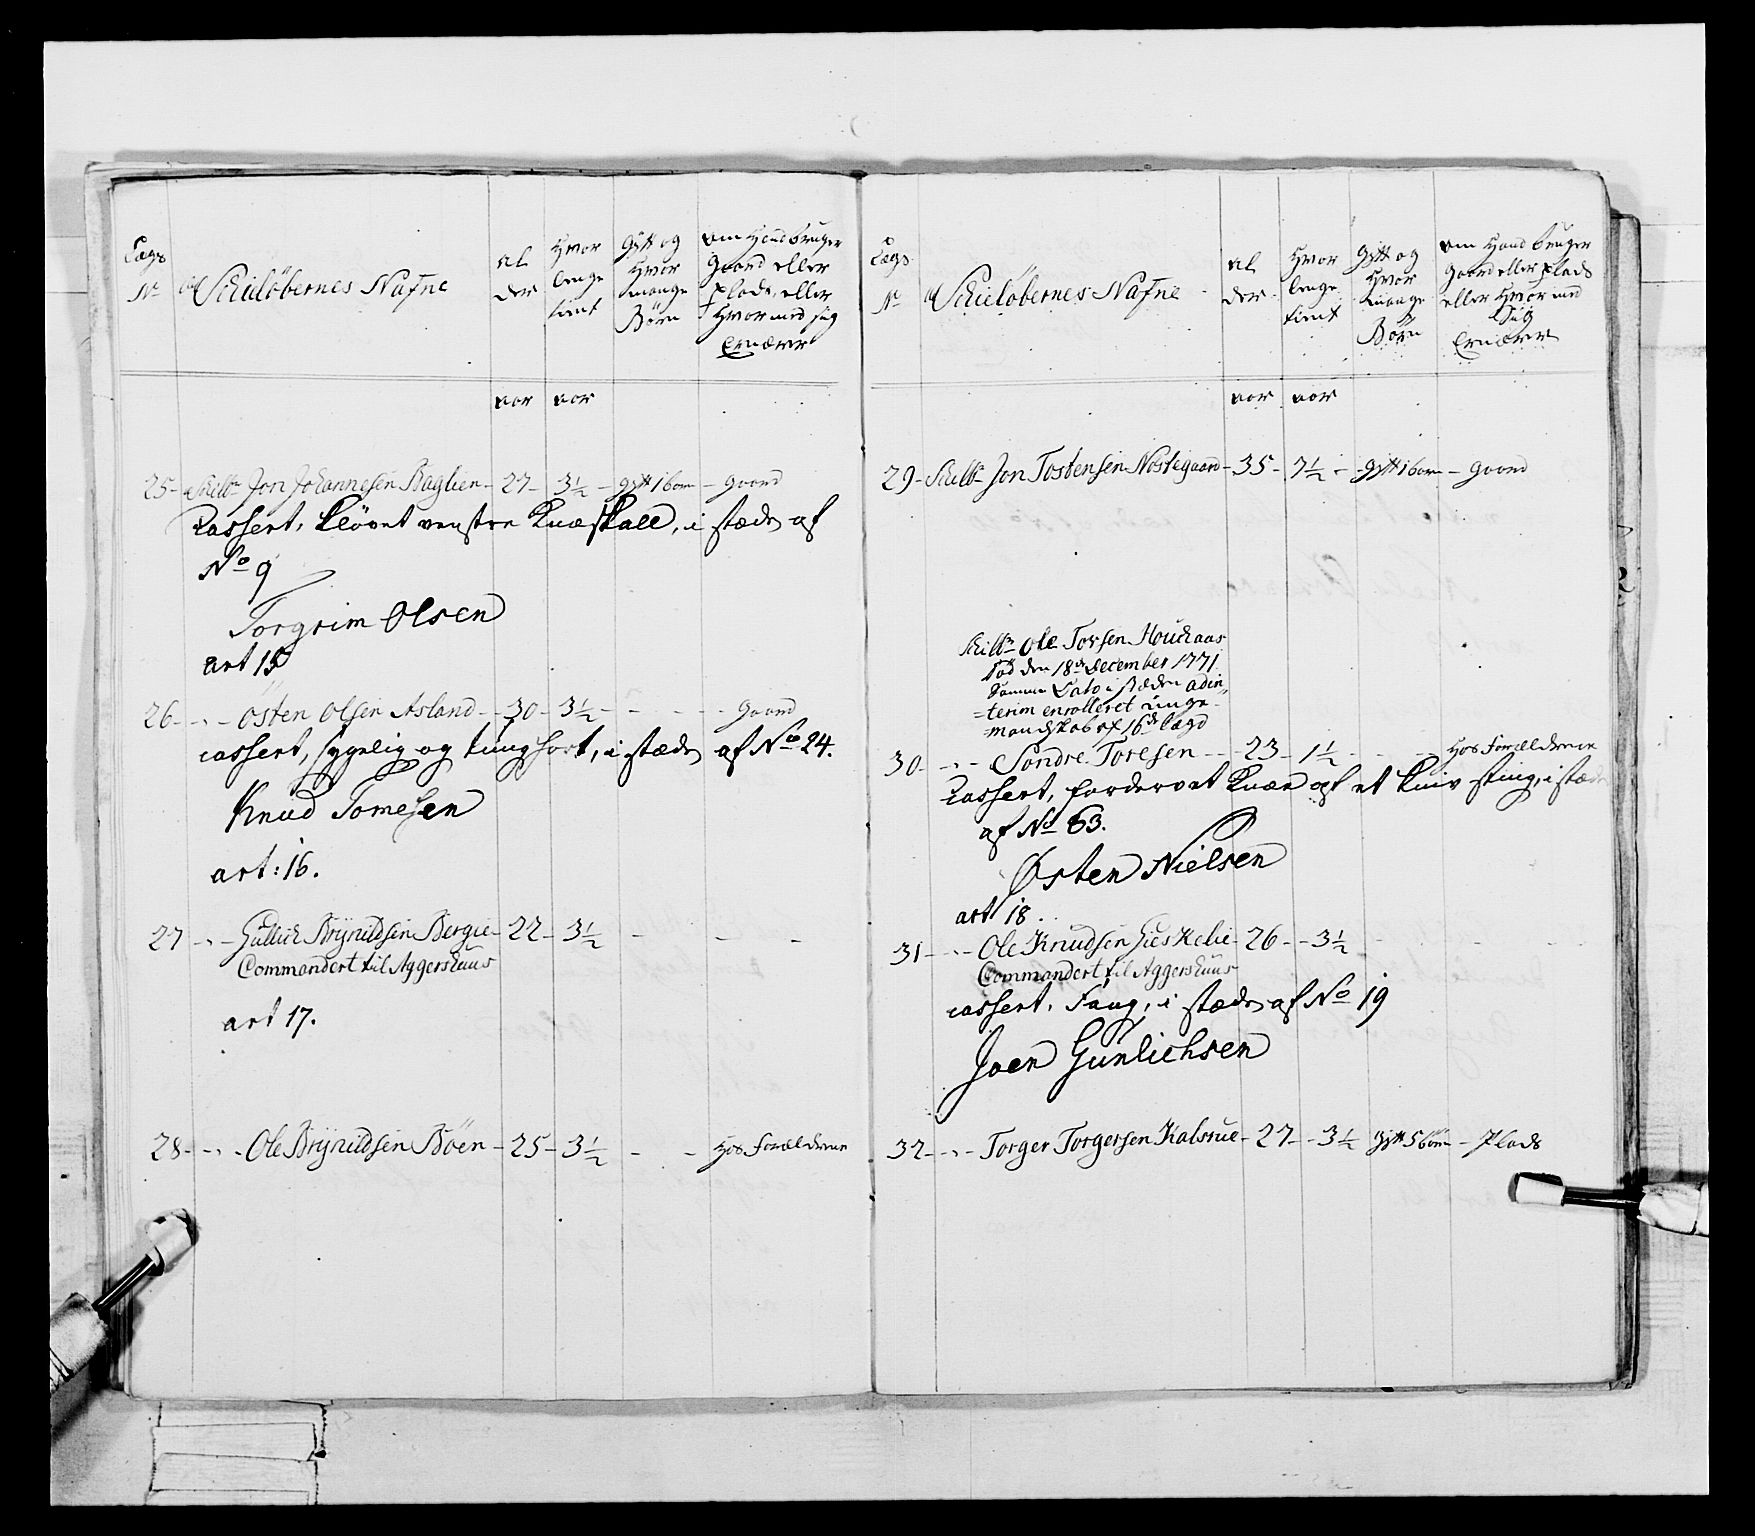 Lægs
No
Schielöbernes Nafne
al
der
Hvor
lenge
tient
Gift og
Hvor
mange
Börn
om Hand bruger
Gaard eller
Plads, eller
Hvormed sig
Ernærer
aar aar
25 - Skilb. Jon Johannesen Baglien - 27 - 3 1/2 - gift 1 barn - gaard
Cassert, Klövet venstre Knæskall, i stæden af
No 9
Torgrim Olsen
art 15
26 - - - Osten Olsen Asland - 30 - 3 1/2 - - - gaard
cassert, sygelig og tunghört, i stæden af No 24.
Knud Tomesen
art: 16.
27 - - Gullich Brynildsen Bergie - 22 - 3 1/2 - - -
Commandert til Aggershuus
art 17.
28 - - - Ole Brynildsen Böen - 25 - 3 1/2 - - Hos Forældrene
Lægs
No
Schielöbernes Nafne
al
der
Hvor
lenge
tient
Gift og
Hvor
mange
Börn
om Hand bruger
Gaard eller Plads
eller Hvormed
Sig
Ernærer
aar aar
29 - Skilb. Jon Tostensen Nostegaard - 35 - 7 1/2 - gift 1 barn - gaard
Skilb. Ole Torsen Houchaas
död den 18de December 1771
Samme Dato i stæden adin
=terim enrolleret unge
=mandskab af 16de Lægd
30 - - - Söndre Toresen - - 23 - 1 1/2 - - Hos Forældrene
Cassert, fordervet Knæe af et Kniv sting, i stæden
af No 63.
Østen Nielsen
art 18.
31 - - - Ole Knudsen Gieskelie - 26 - - 3 1/2 - - -
Commandert til Aggershuus
cassert, i stæden af No 19
Joen Gunlichsen
32 - - - Torger Torgersen Kalsrue - 27 - - 3 1/2 gift 5 börn - Plads